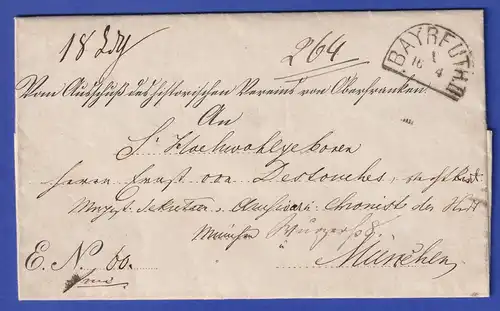 264
BAYREUTH II
1
16 4
Vom Ausschuß des historischen Vereins von Oberfranken.
An
Sr Hochwohlgeboren
Herrn Ernst von Destouches,
Sekretär, Chronist der Stadt
München
München
E. N. 60.